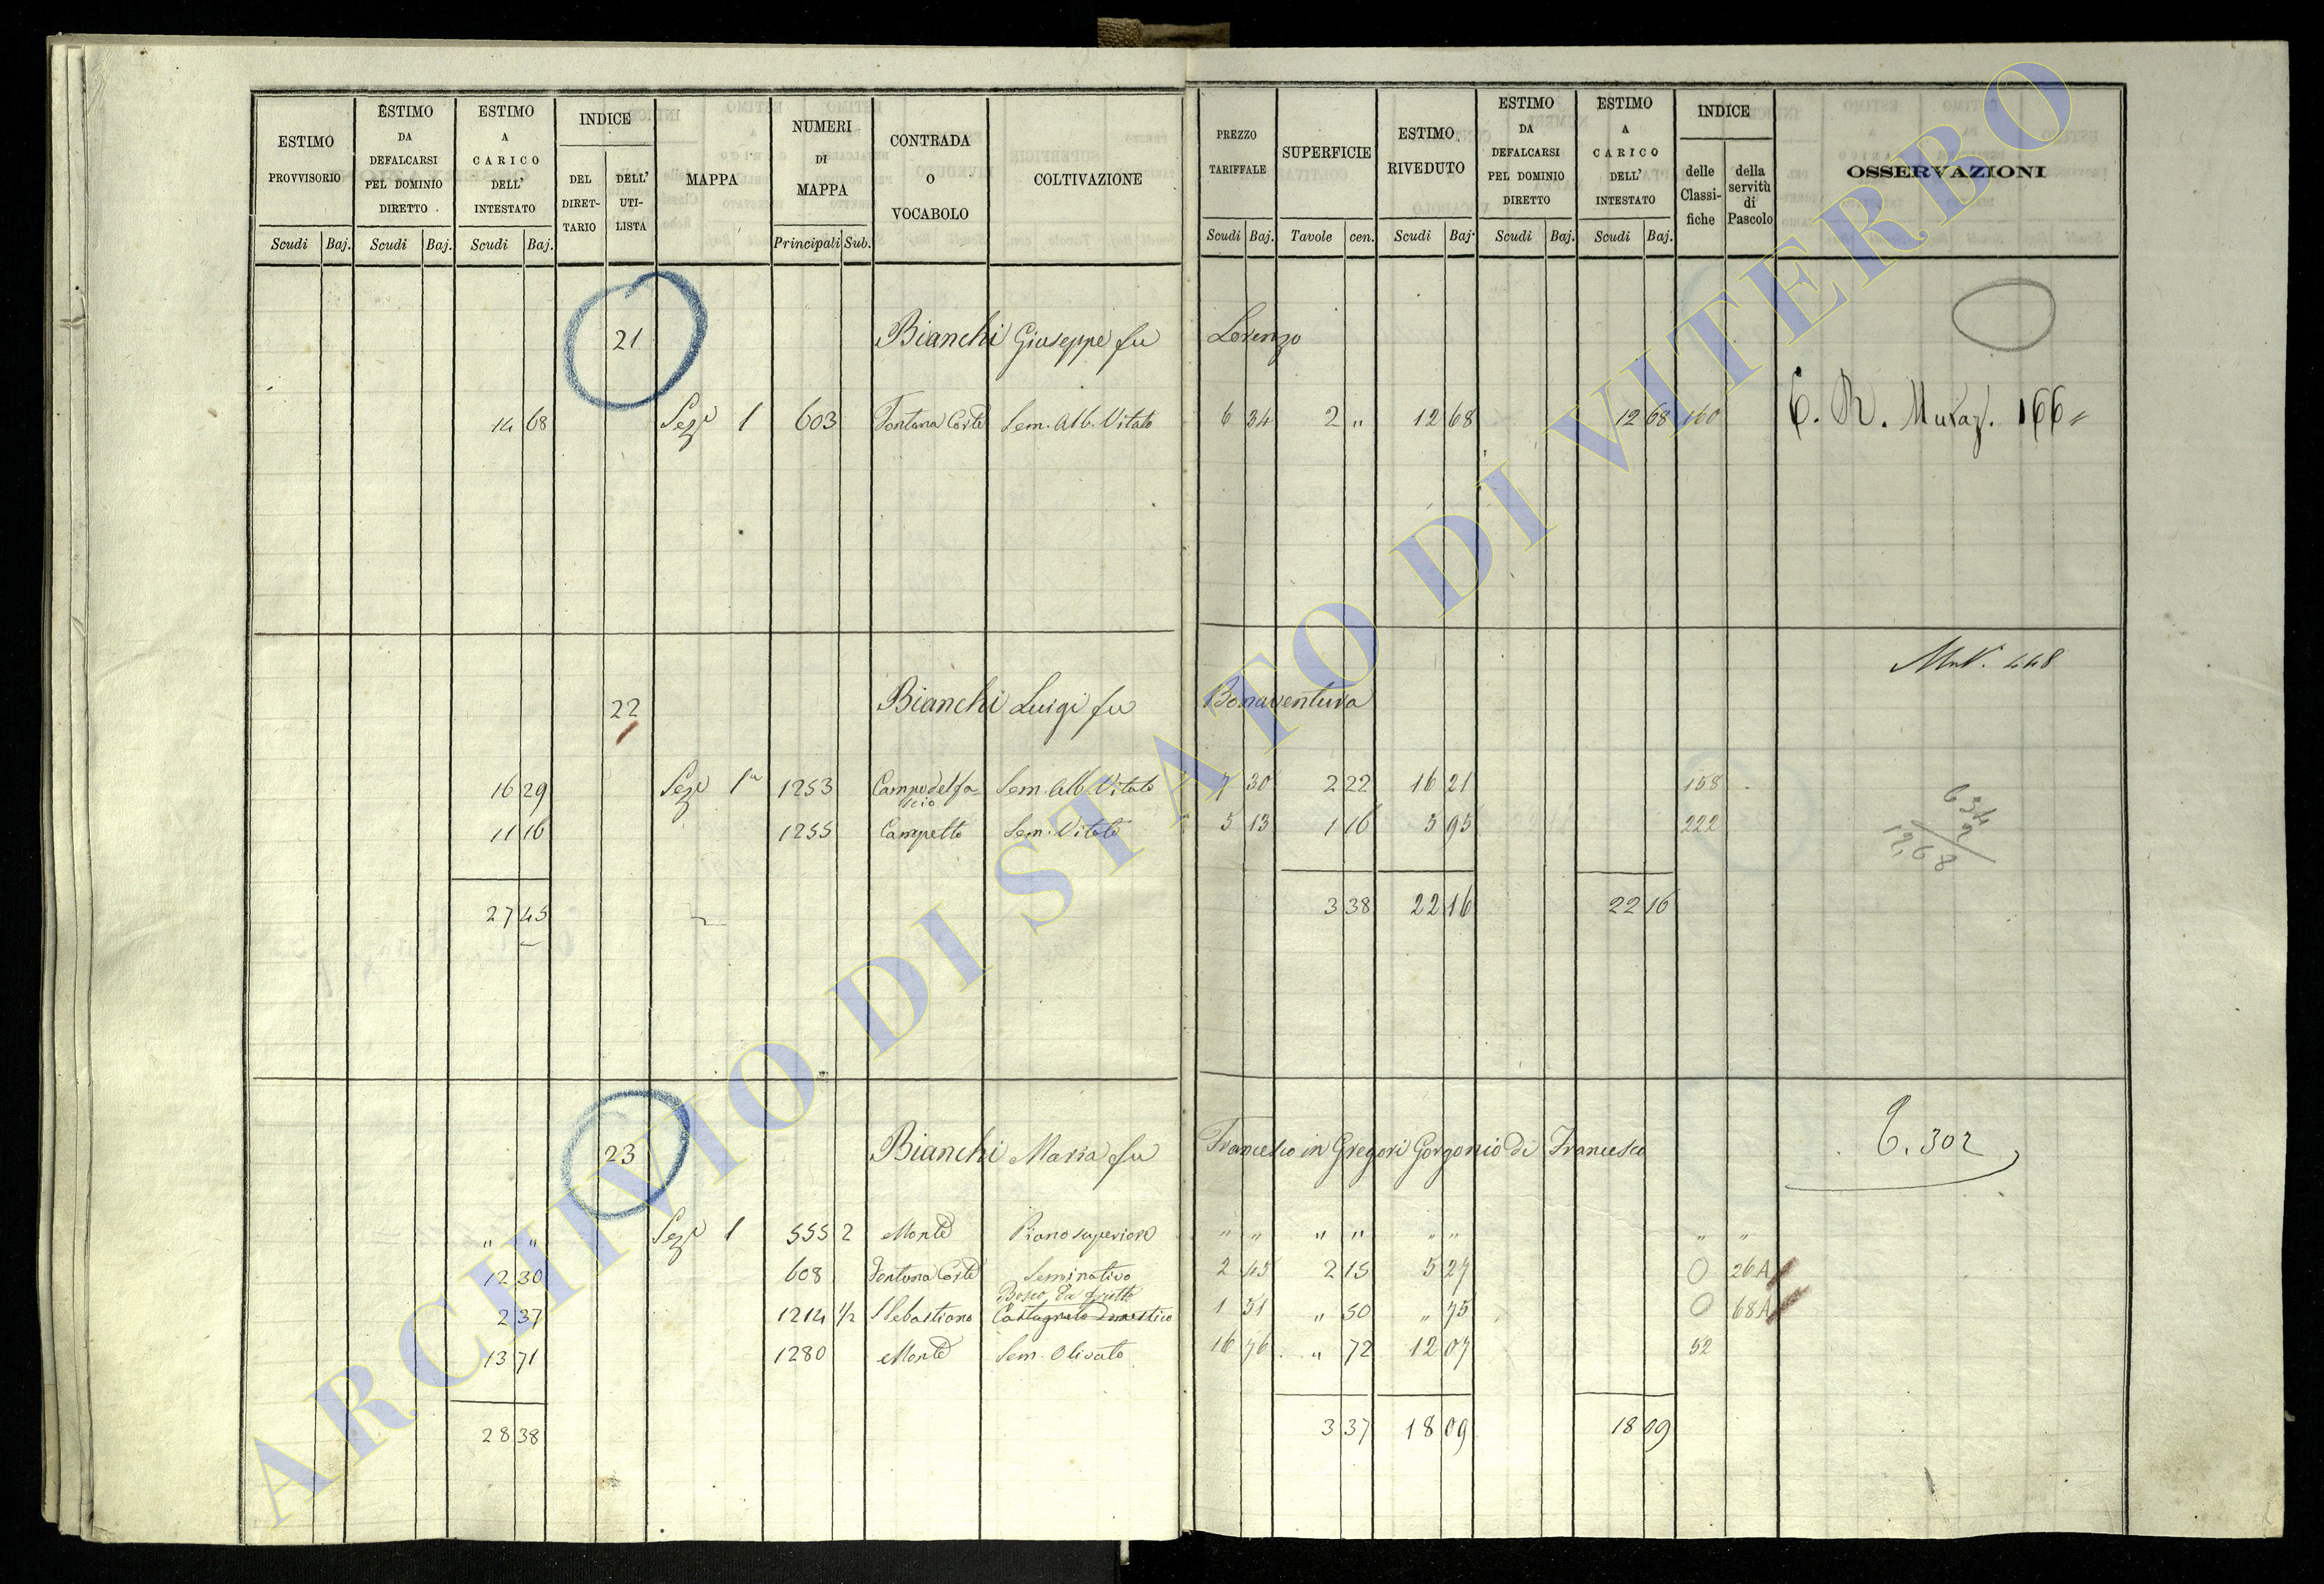 ESTIMO PROVVISORIO | ESTIMO DA DEFALCARSI PEL DOMINIO DIRETTO | ESTIMO A CARICO DELL' INTESTATO | INDICE DEL DIRETTARIO | DELL' UTILISTA | MAPPA | NUMERI DI MAPPA | CONTRADA O VOCABOLO | COLTIVAZIONE | PREZZO TARIFFALE | SUPERFICIE | ESTIMO RIVEDUTO | ESTIMO DA DEFALCARSI PEL DOMINIO DIRETTO | ESTIMO A CARICO DELL' INTESTATO | INDICE delle Classifiche | della servitù di Pascolo | OSSERVAZIONI
Scudi Baj. Scudi Baj. Scudi Baj. Principali Sub. Scudi Baj. Tavole cen. Scudi Baj. Scudi Baj. Scudi Baj.
21 Bianchi Giuseppe fu Lorenzo
14 68 SezE 1 603 Fontana Corte Sem. Alb. Vitato 6 34 2 „ 12 68 12 68 160 166
448
22 Bianchi Luigi fu Bonaventura
16 29 Seze 1a 1253 Campo del fascio Sem. Alb. Vitato 7 30 2 22 16 21 158
11 16 1255 Campetto Sem. Vitato 5 13 1 16 5 95 222
634
2
12,68
27 45 3 38 22 16 22 16
23 Bianchi Maria fu Francesco in Gregori Gorgonio di Francesco
C. 302
„ „ Seze 1 555 2 Monte Piano superiore „ „ „ „ „ „ „ „
12 30 608 Fontana Corte Seminativo 2 45 2 15 5 27 0 26A
Bosco da frutto
2 37 1214 1/2 S Sebastiano Castagneto Domestico 1 51 „ 50 „ 75 0 68A
13 71 1280 Monte Sem. Olivato 16 76 „ 72 12 07 52
28 38 3 37 18 09 18 09
ARCHIVIO DI STATO DI VITERBO